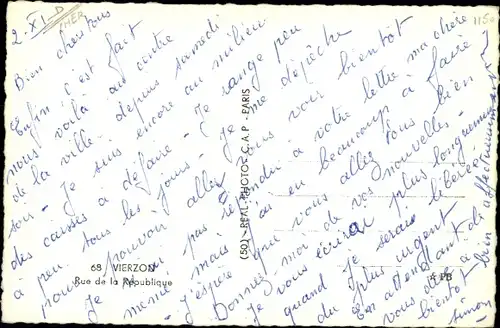 2-XI-D
CHER
1150
Bien chers tous
Enfin c'est fait
nous voilà au centre
de la ville depuis samedi
soir. Je suis encore au milieu
des caisses à défaire - Je range peu
à peu tous les jours - Je me dépêche
pour pouvoir aller vous voir bientôt
Je n'ai pas répondu à votre lettre ma chère
mémé mais j'ai eu beaucoup à faire
J'espère que vous allez tous bien
Donnez-moi de vos nouvelles -
Je vous écrirai plus longuement
quand je serai libérée
du plus urgent
En attendant de
vous
bientôt
bien affectueusement
Simon
(50) - REAL-PHOTO - C.A.P - PARIS
68 VIERZON
Rue de la République